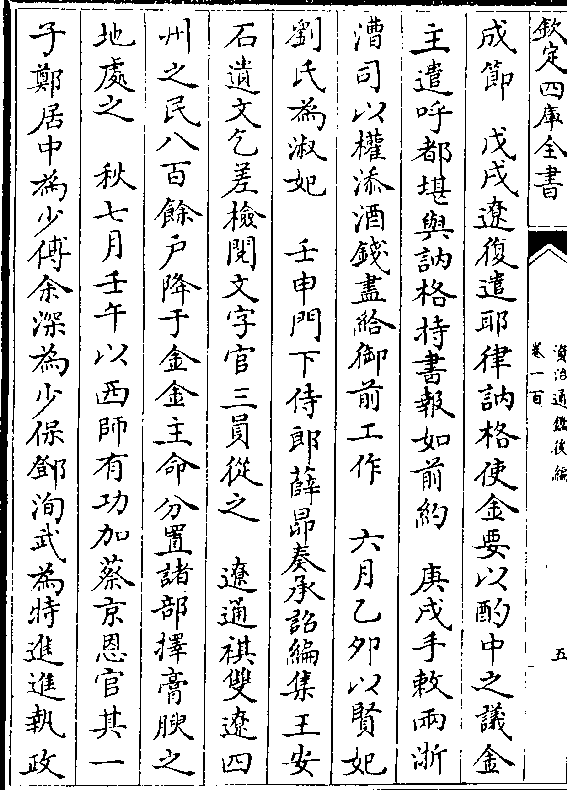 欽定四庫全書
資治通鑑後編
卷一百
五
成節　戊戌遼復遣耶律訥格使金要以酌中之議金
主遣呼都堪與訥格持書報如前約　庚戌手敕兩浙
漕司以權添酒錢盡給御前工作　六月乙夘以賢妃
劉氏為淑妃　壬申門下侍郎薛昻奏承詔編集王安
石遺文乞差檢閱文字官三員從之　遼通祺雙遼四
州之民八百餘户降于金金主命分置諸部擇膏腴之
地處之　秋七月壬午以西師有功加蔡京恩官其一
子鄭居中為少傅余深為少保鄧洵武為特進進執政